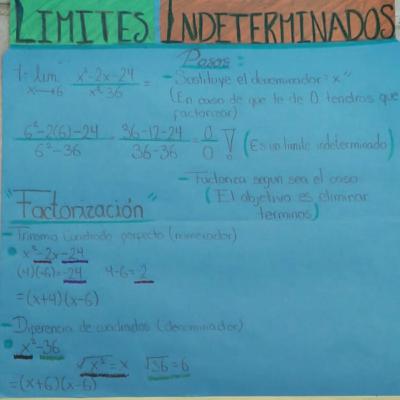 LIMITES INDETERMINADOS
Pasos:
1- lim x→6 x²-2x-24 / x²-36 =
- Sustituye el denominador "x"
(En caso de que te de 0 tendras que factorizar)
6²-2(6)-24 / 6²-36 = 36-12-24 / 36-36 = 0/0 ! (Es un limite indeterminado)
- Factoriza segun sea el caso
(El objetivo es eliminar
terminos)
"Factorización"
- Trinomio cuadrado perfecto (numerador)
• x²-2x-24
(4)(-6)=-24 4-6=-2
=(x+4)(x-6)
- Diferencia de cuadrados (denominador)
• x²-36
√x²=x √36=6
=(x+6)(x-6)